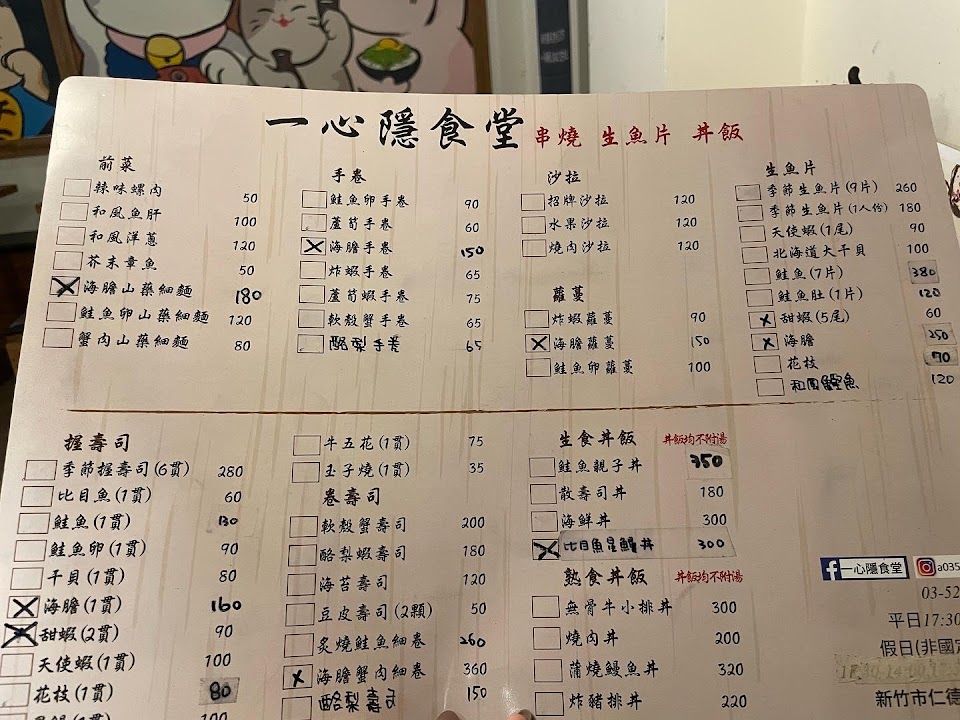 一心隱食堂 串燒 生魚片 丼飯
前菜
辣味螺肉 50
和風魚肝 100
和風洋蔥 120
芥末章魚 50
海膽山藥細麵 180
鮭魚卵山藥細麵 120
蟹肉山藥細麵 80
手卷
鮭魚卵手卷 90
蘆筍手卷 60
海膽手卷 150
炸蝦手卷 65
蘆筍蝦手卷 75
軟殼蟹手卷 65
酪梨手卷 65
沙拉
招牌沙拉 120
水果沙拉 120
燒肉沙拉 120
蘿蔓
炸蝦蘿蔓 90
海膽蘿蔓 150
鮭魚卵蘿蔓 100
生魚片
季節生魚片(9片) 260
季節生魚片(1人份) 180
天使蝦(1尾) 90
北海道大干貝 100
鮭魚(7片) 380
鮭魚肚(1片) 120
甜蝦(5尾) 60
海膽 250
花枝 70
120
握壽司
季節握壽司(6貫) 280
比目魚(1貫) 60
鮭魚(1貫) 130
鮭魚卵(1貫) 90
干貝(1貫) 80
海膽(1貫) 160
甜蝦(2貫) 90
天使蝦(1貫) 100
花枝(1貫) 80
100
牛五花(1貫) 75
玉子燒(1貫) 35
卷壽司
軟殼蟹壽司 200
酪梨蝦壽司 180
海苔壽司 120
豆皮壽司(2顆) 50
炙燒鮭魚細卷 260
海膽蟹肉細卷 360
酪梨壽司 150
生食丼飯 丼飯均不附湯
鮭魚親子丼 350
散壽司丼 180
海鮮丼 300
比目魚星鰻丼 300
熟食丼飯 丼飯均不附湯
無骨牛小排丼 300
燒肉丼 200
蒲燒鰻魚丼 320
炸豬排丼 220
一心隱食堂 a035
03-52
平日17:30
假日(非國定
新竹市仁德